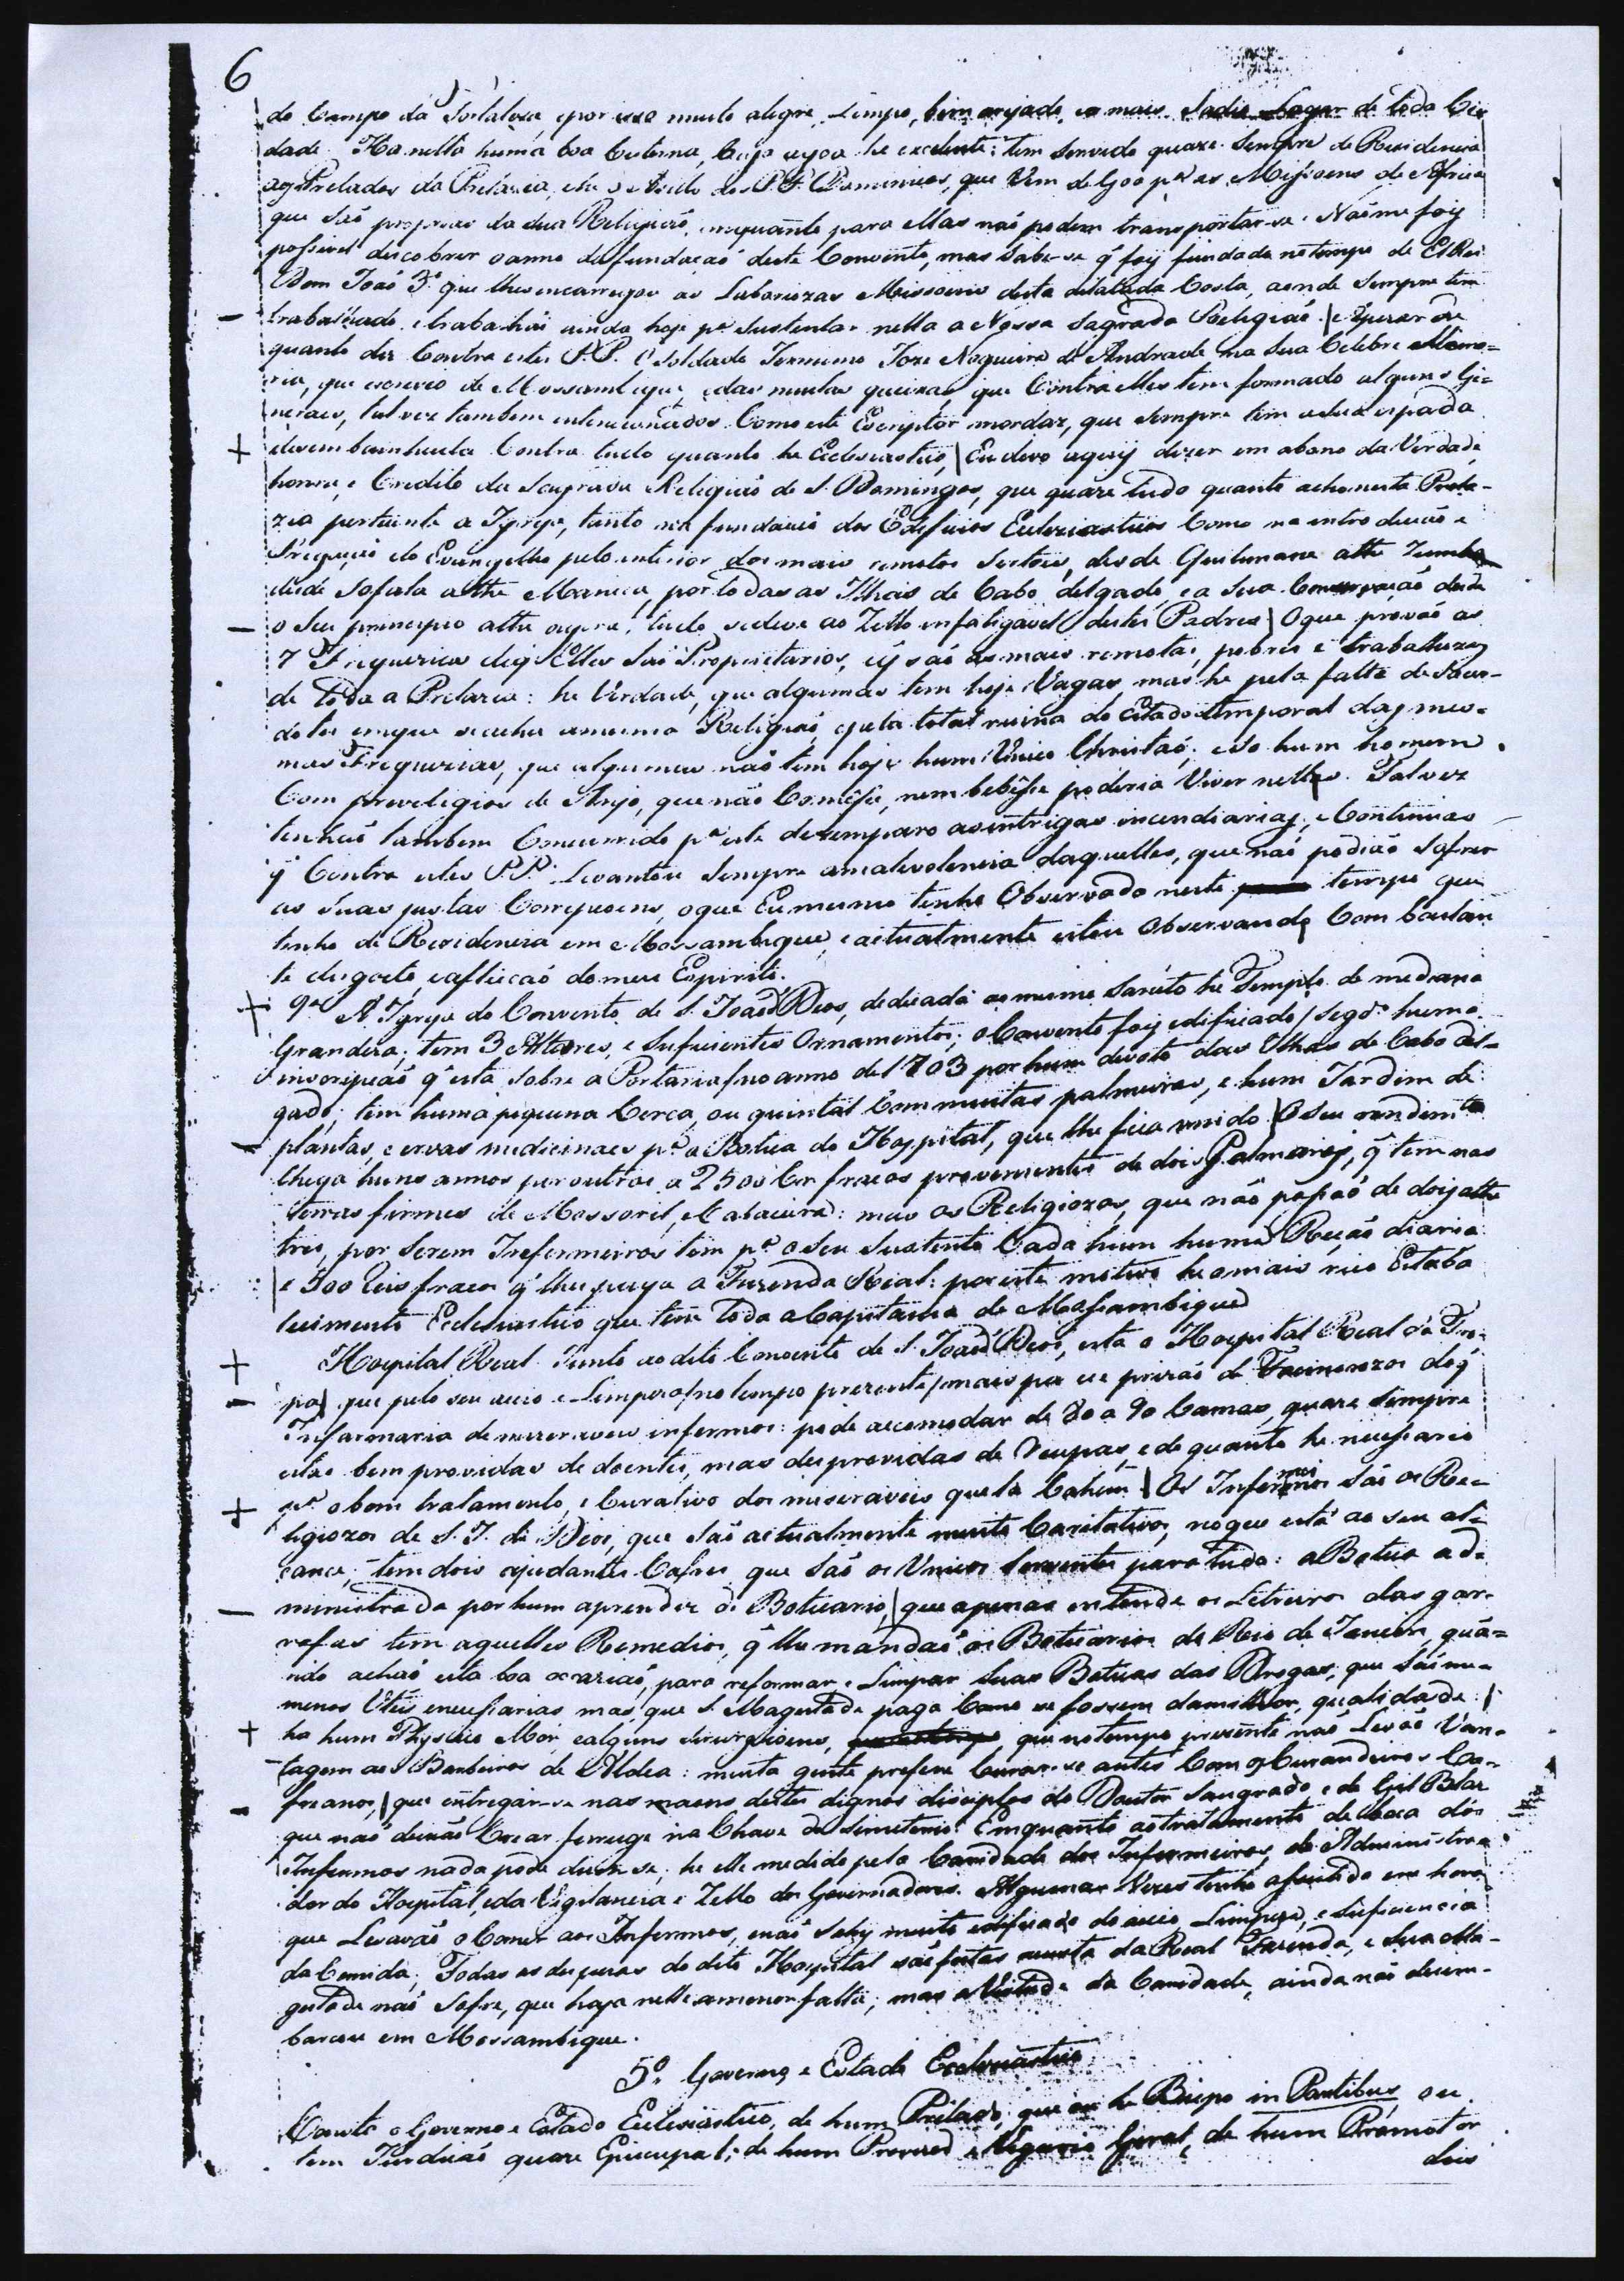 6
do Campo da Fortaleza, e por isso muito alegre, limpo, bem arejado, e o mais sadio Lugar de toda Cid
dade. Ha nella huma boa Cisterna, Cuja agoa he excelente: tem Servido quaze Sempre de Rezidencia
aos Prelados da Prelazia, e he o Azillo dos P.P. Dominicos, que Vem de Goa pª as Missoens de Africa
que São proprias da Sua Religião, emquanto para ellas não podem transportar-se. Não me foy
possivel descobrir o anno da fundação deste Convento, mas Sabe-se q̃ foy fundado no tempo de El Rei
Dom João 3º que lhes encarregou as Laboriozas Missoens desta dilatada Costa, aonde Sempre tem
– trabalhado, e trabalhão ainda hoje pª Sustentar nella a Nossa Sagrada Religião | e apezar de
quanto diz Contra estes P.P. o Soldado Jeronimo Joze Nogueira de Andrade na Sua Celebre Memo=
ria, que escreveo de Mossambique, e das muitas queixas, que Contra elles tem formado alguns Ge=
neraes, talvez tambem intencionados Como este Escriptor mordaz, que Sempre tem a sua espada
+ desembainhada Contra tudo quanto he Eccleziastico, | Eu devo aquy dizer em abono da Verdade,
honra, e Credito da Sagrada Religião de S. Domingos, que quaze tudo quanto acho nesta Prela-
zia pertencente a Igreja, tanto na fundação dos Edificios Ecleziasticos Como na introdução e
Pregação do Evangelho pelo interior dos mais remotos Sertões, desde Quilimane athe Zumbo
desde Sofala athe Manica, por todas as Ilhas de Cabo delgado, e a Sua Conservação desde
– o Seu principio athe agora, tudo se deve ao Zello infatigavel destes Padres | O que provão as
7 Freguezias de q̃ Elles São Proprietarios, e q̃ são as mais remotas, pobres e trabalhozas
de toda a Prelazia: he Verdade, que algumas tem hoje Vagas, mas he pela falta de Sacer-
dotes em que se acha a mesma Religião, e pela total ruina do Estado temporal das mes-
mas Freguezias, que algumas não tem hoje hum Unico Christão; e só hum homem
Com previlegios de Anjo, que não Comêsse, nem bebêsse poderia Viver nellas. Talvez
tenhão tambem Concorrido pª este dezemparo as intrigas incendiarias, e Continuas
q̃ Contra estes P.P. Levantou Sempre a malevolencia daquelles, que não podião Sofrer
as Suas justas Correçoens, o que Eu mesmo tenho Observado neste tempo que
tenho de Rezidencia em Mossambique, e actualmente estou Observando Com bastan
te desgosto, e aflição do meu Espirito.
+ 9ª A Igreja do Convento de S. João de Deos, dedicada ao mesmo Santo he Templo de mediana
Grandeza; tem 3 Altares, e Suficientes Ornamentos; o Convento foy edificado / Segdº huma
inscripção q̃ está sobre a Portaria / no anno de 1703 por hum devoto das Ilhas de Cabo del-
gado; tem huma piquena Cerca, ou quintal Com muitas palmeiras, e hum Jardim de
– plantas, e ervas medicinaes pª a Botica do Hospital, que lhe fica unido | O Seu rendimto
chega huns annos por outros a 2500 Cruz fracos provenientes de dois Palmares, q̃ tem nas
terras firmes de Mossoril, e Cabaceira: mas os Religiozos, que não passão de dois athe
tres, por Serem Infermeiros tem pª o Seu Sustento Cada hum huma Ração diaria
e 500 Reis fracos q̃ lhes paga a Fazenda Real: por este motivo he o mais rico Estabe
lecimento Eccleziastico que tem toda a Capitania de Mossambique
+ Hospital Real. Junto ao dito Convento de S. João de Deos, está o Hospital Real da Tro-
– pa | que pelo seu aceio e Limpeza / no tempo prezente / mais parece prizão de Facinorozos do q̃
Infarmaria de mizeraveis infermos: póde accomodar de 80 a 90 Camas, quaze Sempre
estão bem providas de doentes, mas desprovidas de Roupas, e de quanto he necessario
+ pª o bom tratamento, e Curativo dos mizeraveis que lá Cahem | Os Infermeiros são os Re-
ligiozos de S. J. de Deos, que São actualmente muito Caritativos, no que está ao seu al-
cance; tem dois ajudantes Cafres que São os Unicos Serventes para tudo: a Botica ad-
– ministrada por hum aprendiz de Boticario, | que apenas entende os Letreiros das gar-
rafas tem aquelles Remedios, q̃ lhe mandão os Boticarios do Rio de Janeiro, quã=
ndo achão esta boa occazião, para reformar e Limpar Suas Boticas das Drogas, que São me-
menos Uteis e necessarias mas que S. Magestade paga Como se fossem da melhor qualidade: |
+ ha hum Physico Mor e alguns Cirurgioens, que no tempo prezente não Levão Van-
tagem aos Barbeiros de Aldea: muita gente prefere Curar-se antes Com os Curandeiros Ca-
– freanos, | que entregar-se nas maons destes dignos discipulos do Doutor Sangrado e de Gil Blas
que não deixão Crear ferruge na Chave do Simeterio. Emquanto ao tratamento de boca dos
Infermos nada póde dizer-se; he elle medido pela Caridade dos Infermeiros, do Administra-
dor do Hospital, e da Vigilancia e Zello dos Governadores. Algumas Vezes tenho assistido em hora
que Levavão o Comer aos Infermos, e não Sahy muito edificado do aceio, Limpeza, e Suficiencia
da Comida; Todas as despezas do dito Hospital são feitas a custa da Real Fazenda, e Sua Ma-
gestade não Sofre, que haja nelle a menor falta; mas a Virtude da Caridade, ainda não desem-
barcou em Mossambique.
5º Governo e Estado Ecclesiastico
Consta o Governo e Estado Ecclesiastico, de hum Prelado, que ou he Bispo in Partibus, ou
tem Jurdição quaze Episcopal; de hum Provisor e Vigario Geral, de hum Promotor
dois